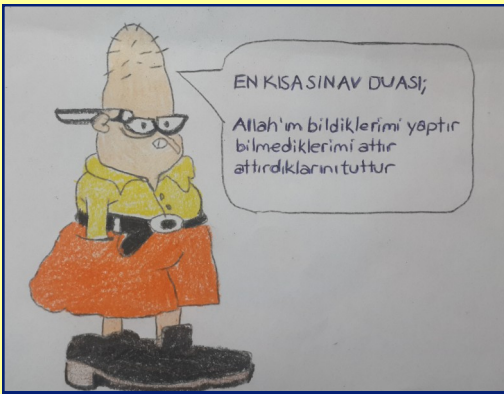 EN KISA SINAV DUASI;
Allah'ım bildiklerimi yaptır
bilmediklerimi attır
attırdıklarını tuttur